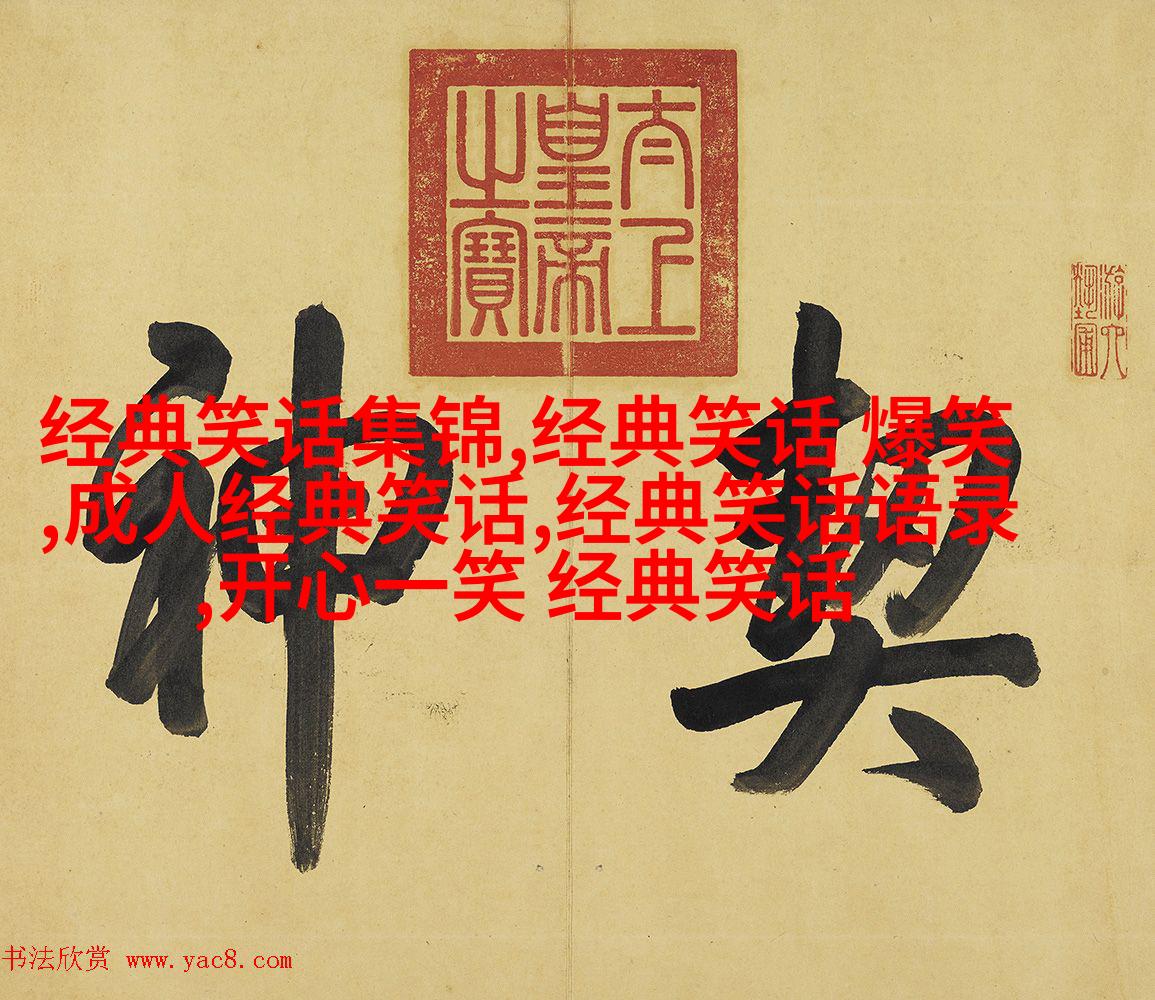 太上
皇帝
之寶
游六
藝圃
契神
经典笑话集锦,经典笑话 爆笑
,成人经典笑话,经典笑话语录
,开心一笑 经典笑话
书法欣赏 www.yac8.com